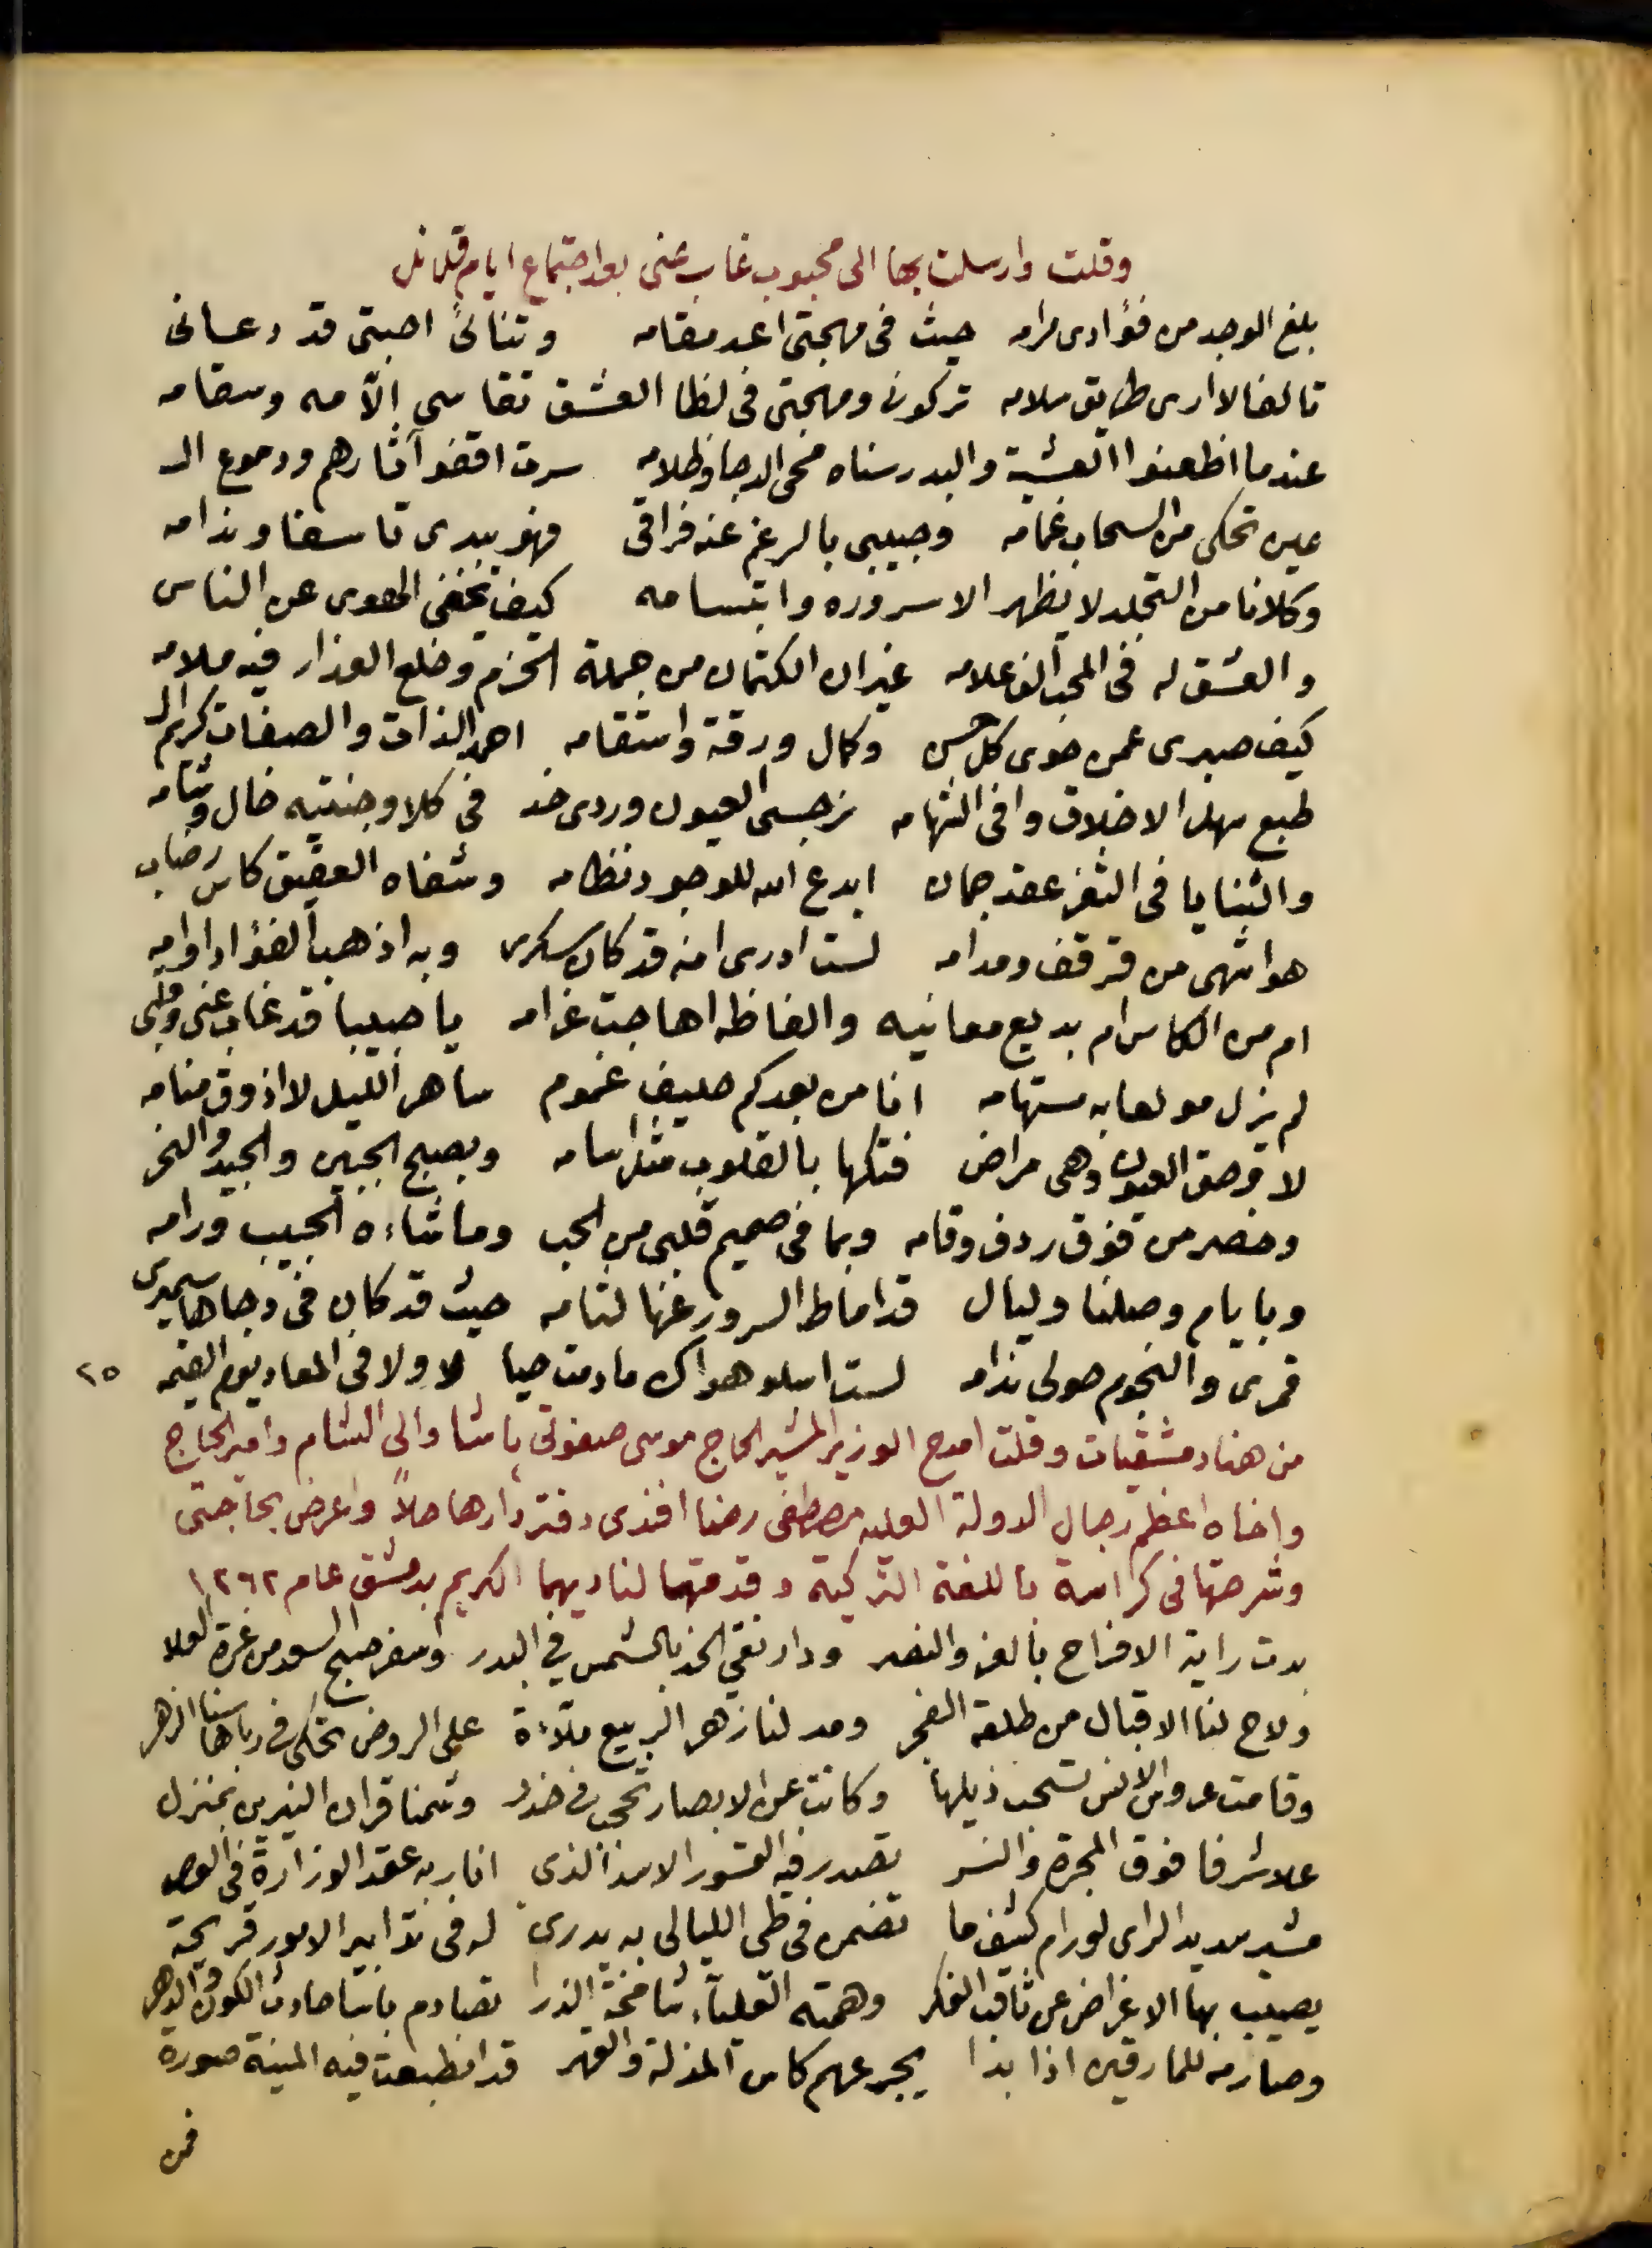 وقلت وارسلت بها الى محبوب غاب عنى بعد اجتماع ايام قلائل
بلغ الوجد من فؤادى مرامه حيث فى مهجتى اعد مقامه وتنائى احبتى قد دعانى
تالفا لا ارى طريق سلامه تركون ومهجتى فى لظا العشق تقاسى الآمه وسقامه
عندما اظعنوا العشية والبدر سناه محى الدجا وظلامه سرت اقفو آثارهم ودموع الـ
عين تحكى من السحاب غمامه وحبيبى بالرغم عنه فراقى فهو يبدى تاسفا وندامه
وكلانا من التجلد لا يظهر الا سروره وابتسامه كيف تخفى الهوى عن الناس
والعشق له فى المحب الف علامه غير ان الكتمان من جملة الحزم وخلع العذار فيه ملامه
كيف صبرى عمن حوى كل حسن وكمال ورقة واستقامه احمد الذات والصفات كريم الـ
طبع سهل الاخلاق وافى الشهامه نرجسى العيون وردى خد فى كلا وجنتيه خال وشامه
والثنايا فى الثغر عقد جمان ابدع الله للوجود نظامه وشفاه العقيق كاس رضاب
هو اشهى من قرقف ومدامه لست ادرى امنه قد كان سكرى وبه اذهب الفؤاد اوامه
ام من الكاس ام بديع معانيه والفاظه اهاجت غرامه يا حبيبا قد غاب عنى وقلبى
لم يزل مولعا به مستهامه انا من بعدكم حليف غموم ساهر الليل لا اذوق منامه
لا وحق العيون وهى مراض فتكها بالقلوب مثل اسامه وبصبح الجبين والجيد والنحر
وخصر من فوق ردف وقامه وبما فى صميم قلبى من الحب وما شاءه الحبيب ورامه
وبايام وصلنا وليال قد اماط السرور عنها لثامه حيث قد كان فى دجاها سميرى
قمرى والنجوم حولى ندامه لست اسلو هواك ما دمت حيا لا ولا فى المعاد يوم القيمه ٢٥
من هنا دمشقيات وقلت امدح الوزير المشير الحاج موسى صفوتى باشا والى الشام وامير الحاج
واخاه اعظم رجال الدولة العليه مصطفى رضا افندى دفتردارها حلاً واعرض بحاجتى
وشرحتها فى كراسة باللغة التركية وقدمتها لناديهما الكريم بدمشق عام ١٢٦٢
بدت راية الافراح بالعز والنصر ودار نقي الخد بالشمس في البدر واسفر صبح السعد من غرة العلا
ولاح لنا الاقبال من طلعة الفجر ومد لنا زهر الربيع ملآءة على الروض تحكى فى رباها سنا الزهر
وقامت عروس الانس تسحب ذيلها وكانت عن الابصار تحجب فى خدر وشمنا قران النيرين بمنزل
علا شرفا فوق المجرة والنسر تصدر فيه القسور الاسد الذى انار به عقد الوزارة فى العصر
مشير سديد الراى لو رام كشف ما تضمن فى طى الليالى به يدرى له فى تدابير الامور قريحة
يصيب بها الاغراض عن ثاقب الفكر وهمته العليآء شامخة الذرا تصادم باسا حادث الكون والدهر
وصارمه للمارقين اذا بدا يجرعهم كاس المذلة والقهر قد انطبعت فيه المنية صورة
فمن